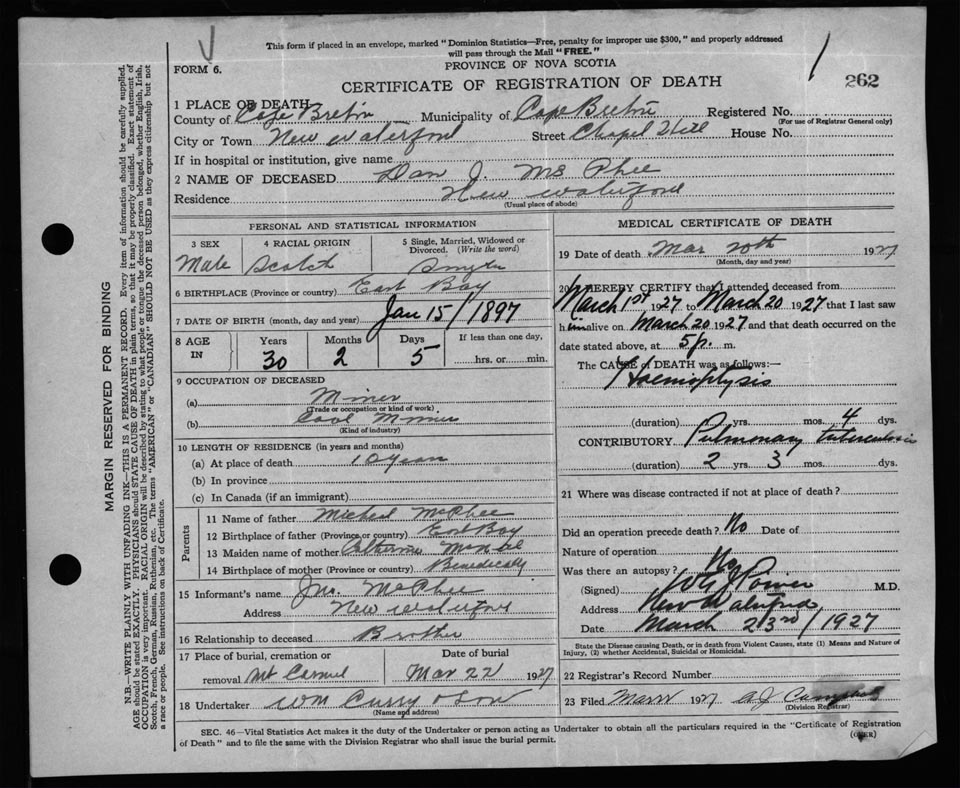 This form if placed in an envelope, marked "Dominion Statistics—Free, penalty for improper use $300," and properly addressed
will pass through the Mail "FREE."
FORM 6.
PROVINCE OF NOVA SCOTIA
CERTIFICATE OF REGISTRATION OF DEATH
262
1 PLACE OF DEATH
County of Cape Breton Municipality of Cape Breton Registered No.
(For use of Registrar General only)
City or Town New Waterford Street Chapel Hill House No.
If in hospital or institution, give name
2 NAME OF DECEASED Dan J. McPhee
Residence New Waterford
(Usual place of abode)
PERSONAL AND STATISTICAL INFORMATION
3 SEX 4 RACIAL ORIGIN 5 Single, Married, Widowed or Divorced. (Write the word)
Male Scotch Single
6 BIRTHPLACE (Province or country) East Bay
7 DATE OF BIRTH (month, day and year) Jan 15/1897
8 AGE IN Years Months Days If less than one day,
30 2 5 hrs. or min.
9 OCCUPATION OF DECEASED
(a) Miner
(Trade or occupation or kind of work)
(b) Coal Mines
(Kind of industry)
10 LENGTH OF RESIDENCE (in years and months)
(a) At place of death 10 years
(b) In province
(c) In Canada (if an immigrant)
Parents
11 Name of father Micheal McPhee
12 Birthplace of father (Province or country) East Bay
13 Maiden name of mother Catherine
14 Birthplace of mother (Province or country)
15 Informant's name Jno. McPhee
Address New Waterford
16 Relationship to deceased Brother
17 Place of burial, cremation or removal Mt Carmel Date of burial Mar 22 1927
18 Undertaker Wm Curry & Son
(Name and address)
MEDICAL CERTIFICATE OF DEATH
19 Date of death Mar 20th 1927
(Month, day and year)
20 I HEREBY CERTIFY that I attended deceased from
March 1st 1927 to March 20 1927 that I last saw
him alive on March 20 1927 and that death occurred on the
date stated above, at 5 p. m.
The CAUSE of DEATH was as follows:—
Haemoptysis
(duration) yrs. mos. 4 dys.
CONTRIBUTORY Pulmonary tuberculosis
(duration) 2 yrs. 3 mos. dys.
21 Where was disease contracted if not at place of death?
Did an operation precede death? No Date of
Nature of operation
Was there an autopsy? No
(Signed) Power M.D.
Address New Waterford
Date March 23rd/1927
State the Disease causing Death, or in death from Violent Causes, state (1) Means and Nature of
Injury, (2) whether Accidental, Suicidal or Homicidal.
22 Registrar's Record Number
23 Filed 1927 A J Campbell
(Division Registrar)
SEC. 46—Vital Statistics Act makes it the duty of the Undertaker or person acting as Undertaker to obtain all the particulars required in the "Certificate of Registration
of Death" and to file the same with the Division Registrar who shall issue the burial permit.
(OVER)
MARGIN RESERVED FOR BINDING
N.B.—WRITE PLAINLY WITH UNFADING INK—THIS IS A PERMANENT RECORD. Every item of information should be carefully supplied.
AGE should be stated EXACTLY. PHYSICIANS should STATE CAUSE OF DEATH in plain terms, so that it may be properly classified. Exact statement of
OCCUPATION is very important. RACIAL ORIGIN will be described by stating to what people or tongue the deceased person belonged, whether English, Irish,
Scotch, French, German, Russian, Ruthenian, etc. The terms "AMERICAN" or "CANADIAN" SHOULD NOT BE USED as they express citizenship but not
a race or people. See instructions on back of Certificate.